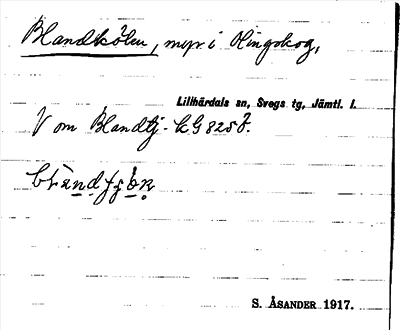 Blandkölen, myr i Olingskog,
Lillhärdals sn, Svegs tg, Jämtl. l.
V om Blandtj.
S. ÅSANDER 1917.